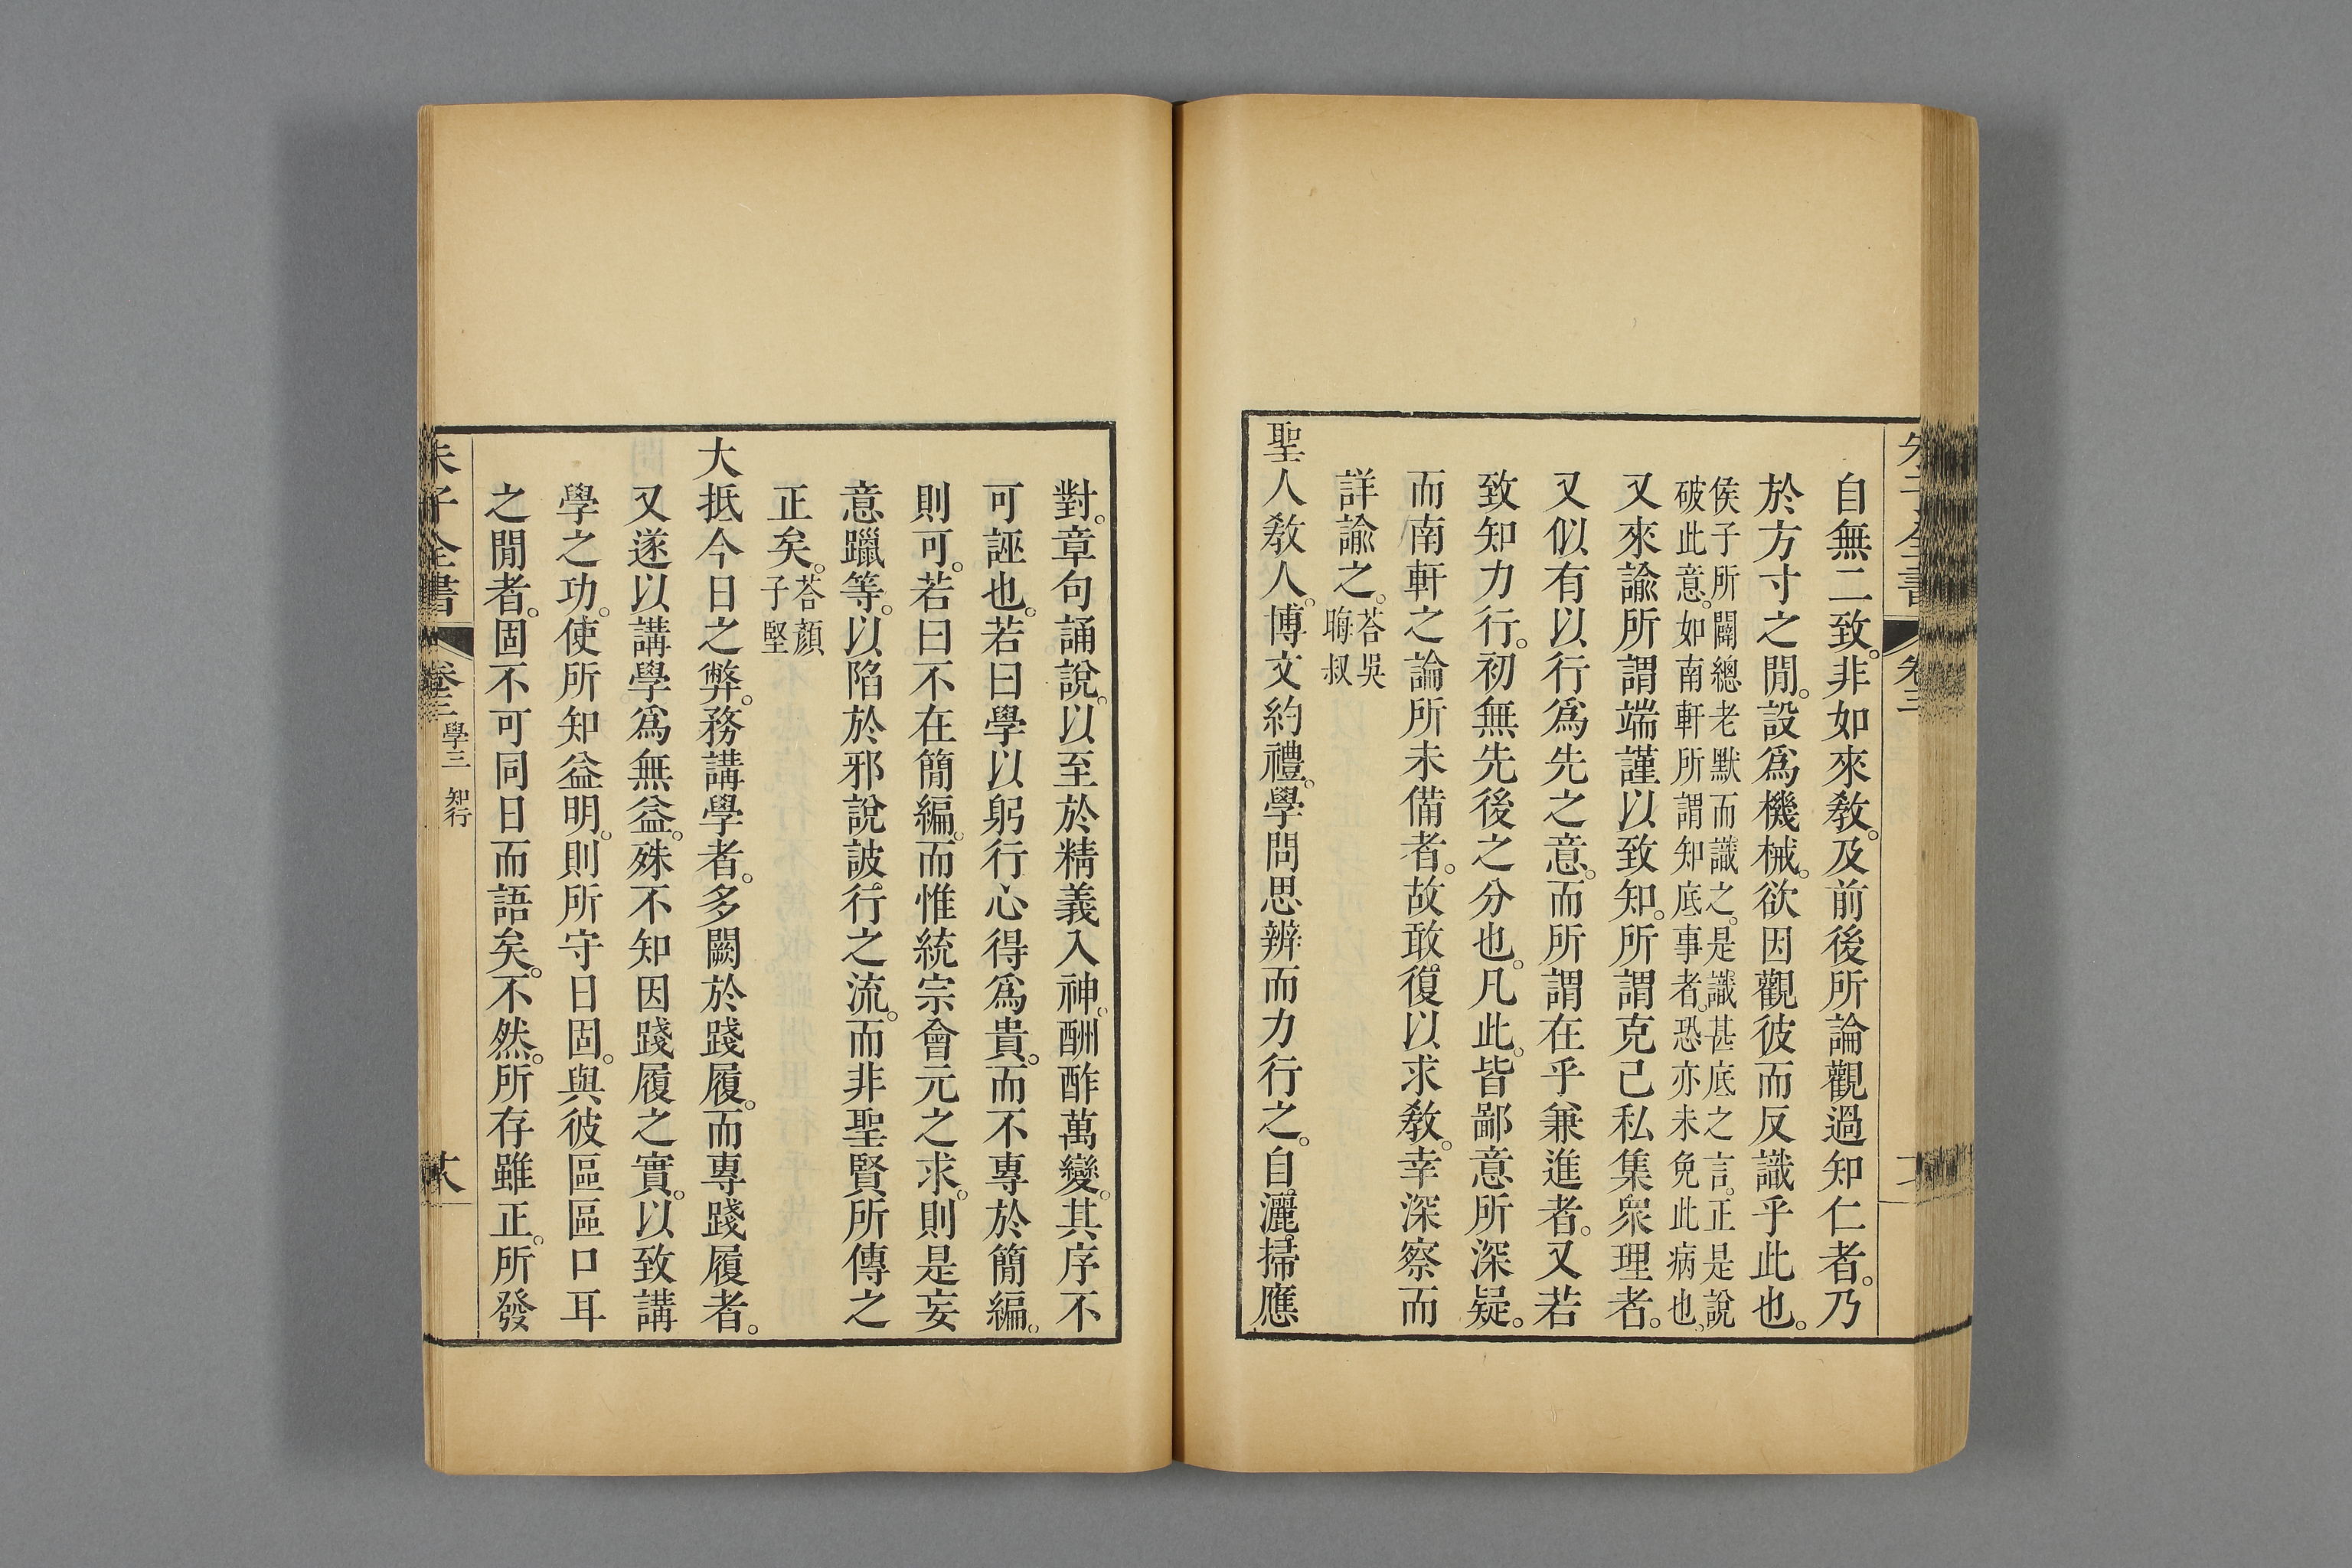 自無二致。非如來敎。及前後所論觀過知仁者。乃
於方寸之閒。設爲機械。欲因觀彼而反識乎此也。
侯子所闢總老默而識之。是識甚底之言。正是說
破此意。如南軒所謂知底事者。恐亦未免此病也。
又來諭所謂端謹以致知。所謂克己私集衆理者。
又似有以行爲先之意。而所謂在乎兼進者。又若
致知力行。初無先後之分也。凡此。皆鄙意所深疑。
而南軒之論所未備者。故敢復以求敎。幸深察而
詳諭之。荅吳
晦叔
聖人敎人。博文約禮。學問思辨而力行之。自灑掃應
對。章句誦說。以至於精義入神。酬酢萬變。其序不
可誣也。若曰學以躬行心得爲貴。而不專於簡編。
則可。若曰不在簡編。而惟統宗會元之求。則是妄
意躐等。以陷於邪說詖行之流。而非聖賢所傳之
正矣。荅顏
子堅
大抵今日之弊。務講學者。多闕於踐履。而專踐履者。
又遂以講學爲無益。殊不知因踐履之實。以致講
學之功。使所知益明。則所守日固。與彼區區口耳
之閒者。固不可同日而語矣。不然。所存雖正。所發
朱子全書
卷三
學三 知行